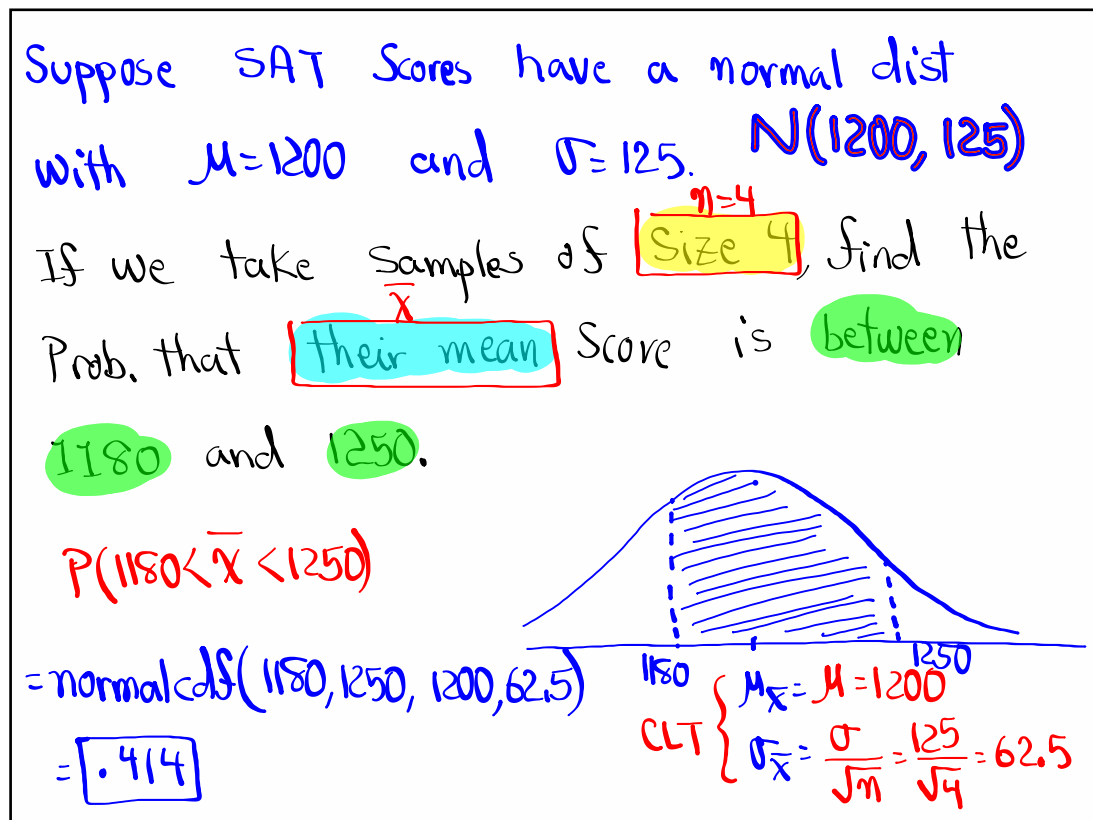 Suppose SAT Scores have a normal dist
with μ=1200 and σ=125. N(1200, 125)
n=4
If we take Samples of Size 4, find the
x̄
Prob. that their mean Score is between
1180 and 1250.
P(1180< x̄ <1250)
=normalcdf(1180,1250, 1200,62.5)
= .414
1180 1250
CLT { μx̄ = μ = 1200
σx̄ = σ/√n = 125/√4 = 62.5